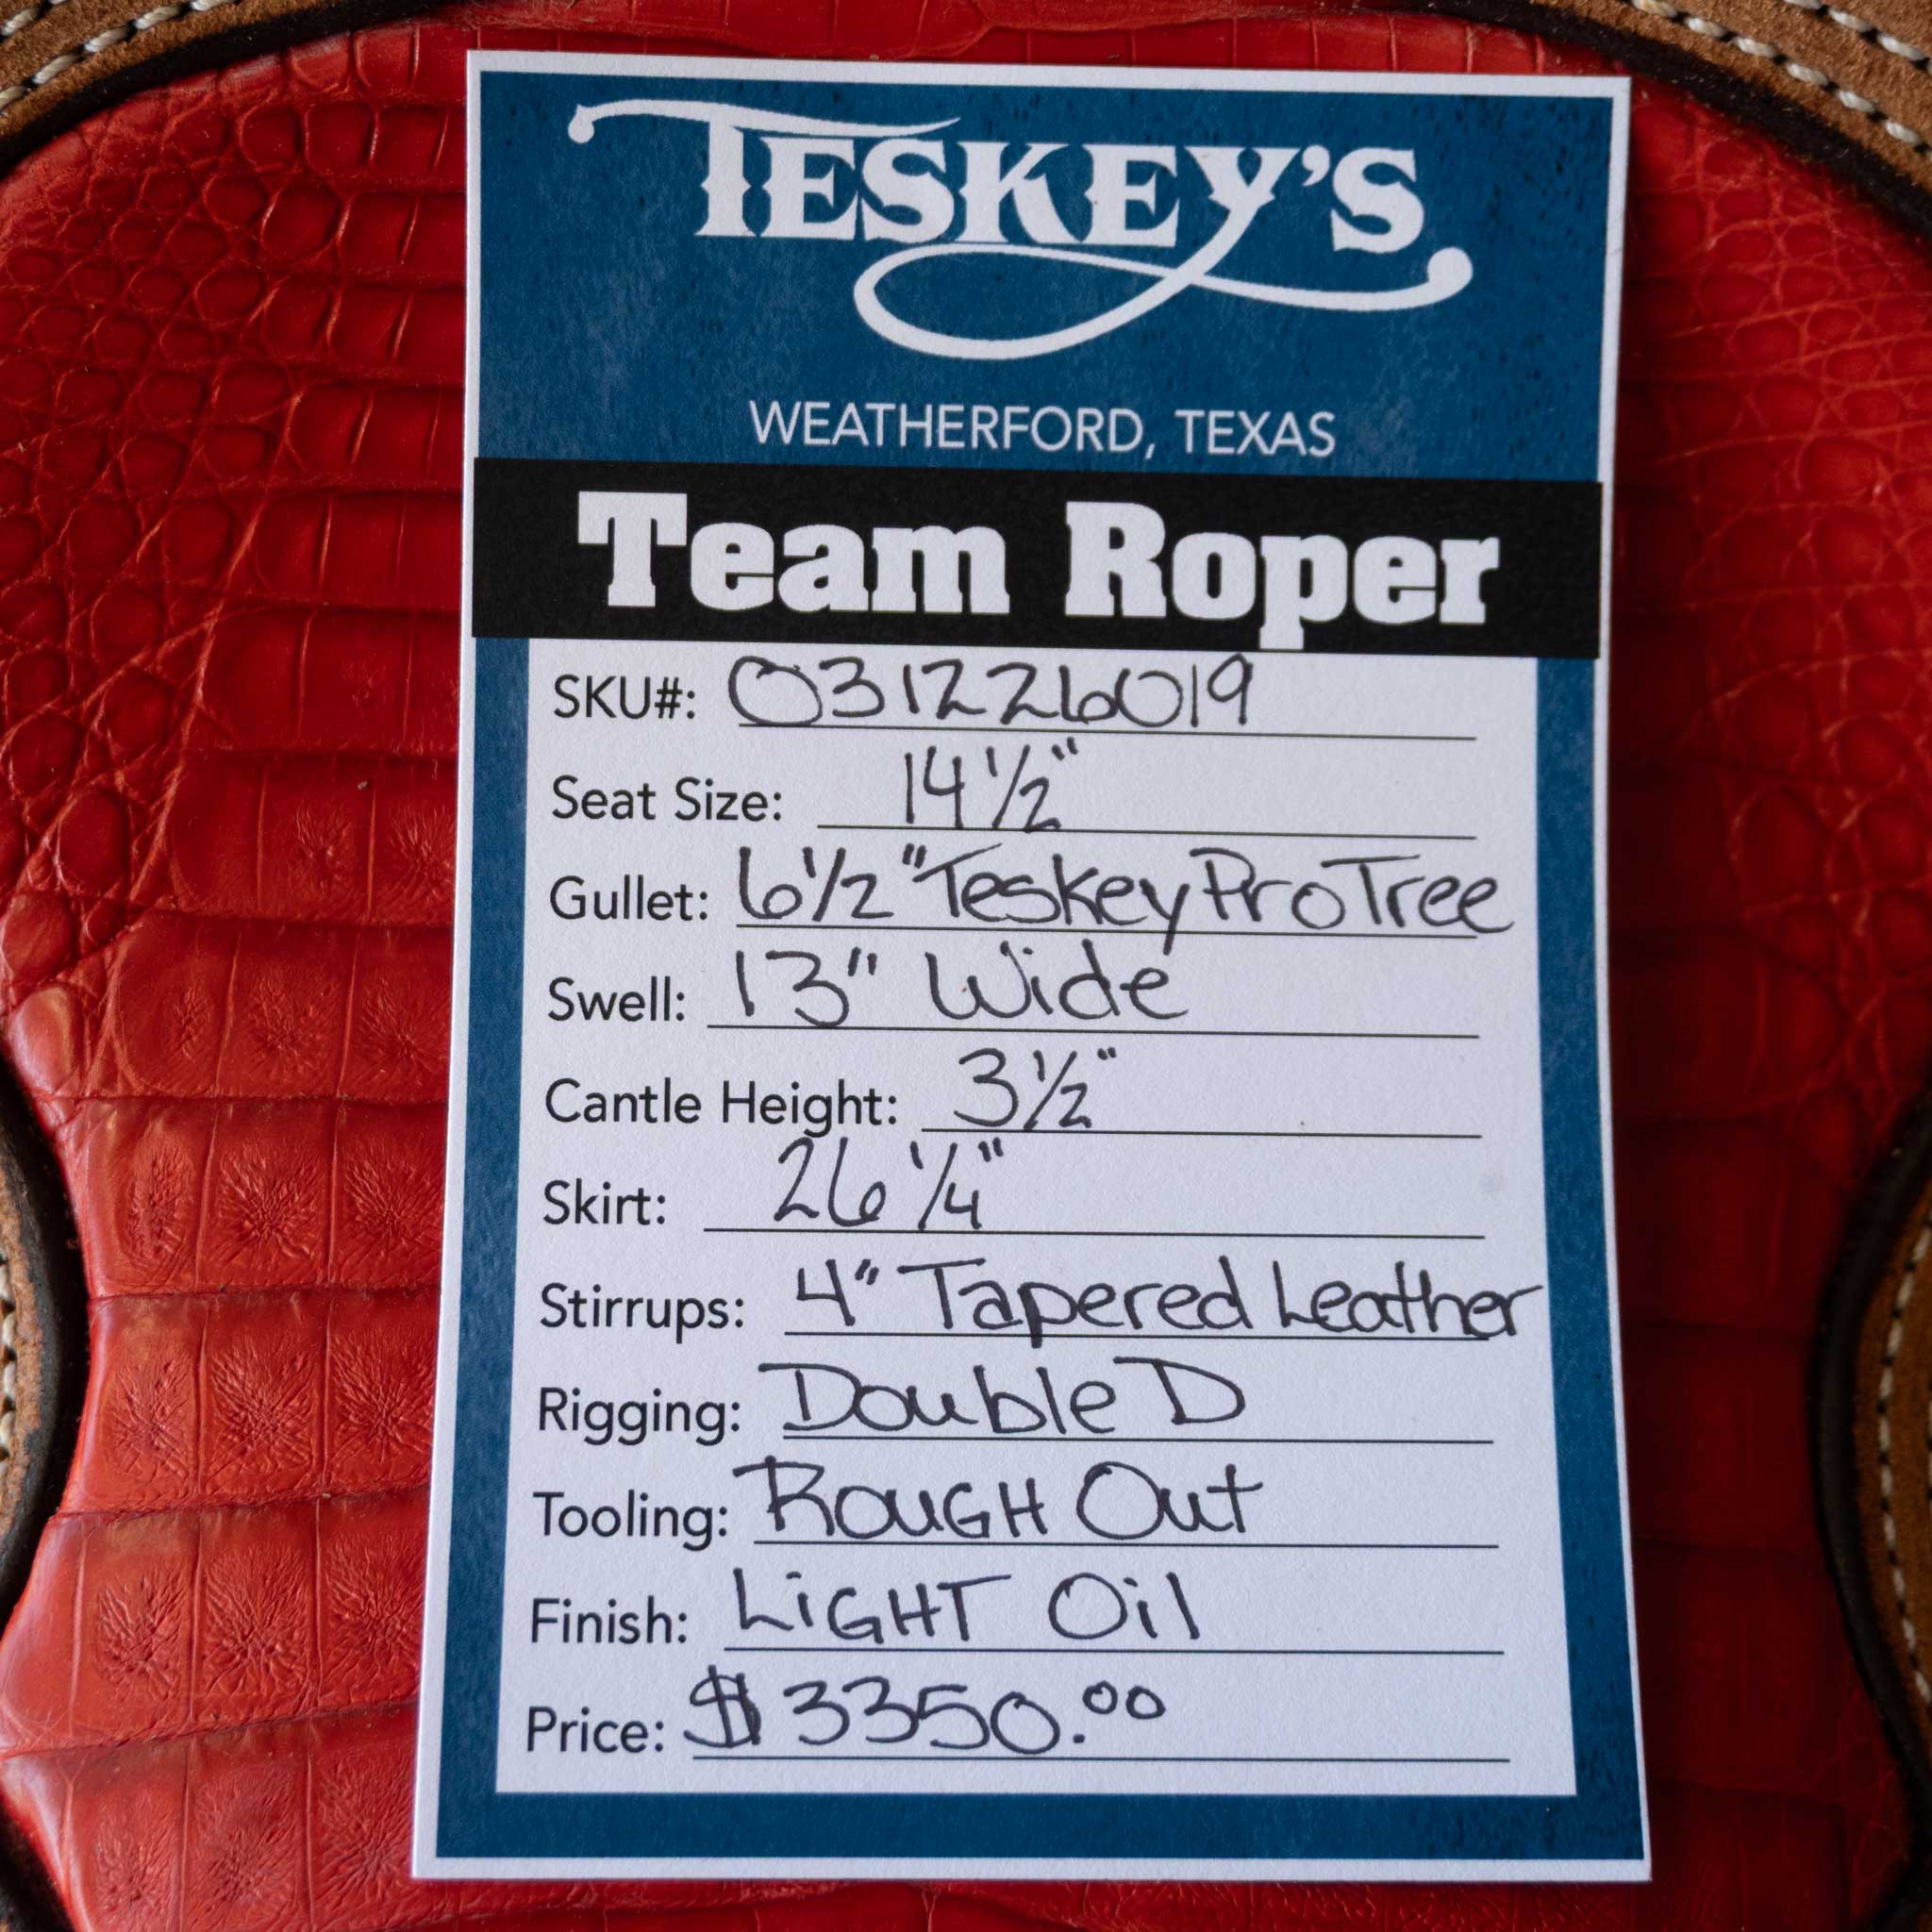 TESKEY'S
WEATHERFORD, TEXAS
Team Roper
SKU#: 031226019
Seat Size: 14 1/2"
Gullet: 6 1/2" Teskey Pro Tree
Swell: 13" Wide
Cantle Height: 3 1/2"
Skirt: 26 1/4"
Stirrups: 4" Tapered Leather
Rigging: Double D
Tooling: ROUGH Out
Finish: LiGHT Oil
Price: $3350.00